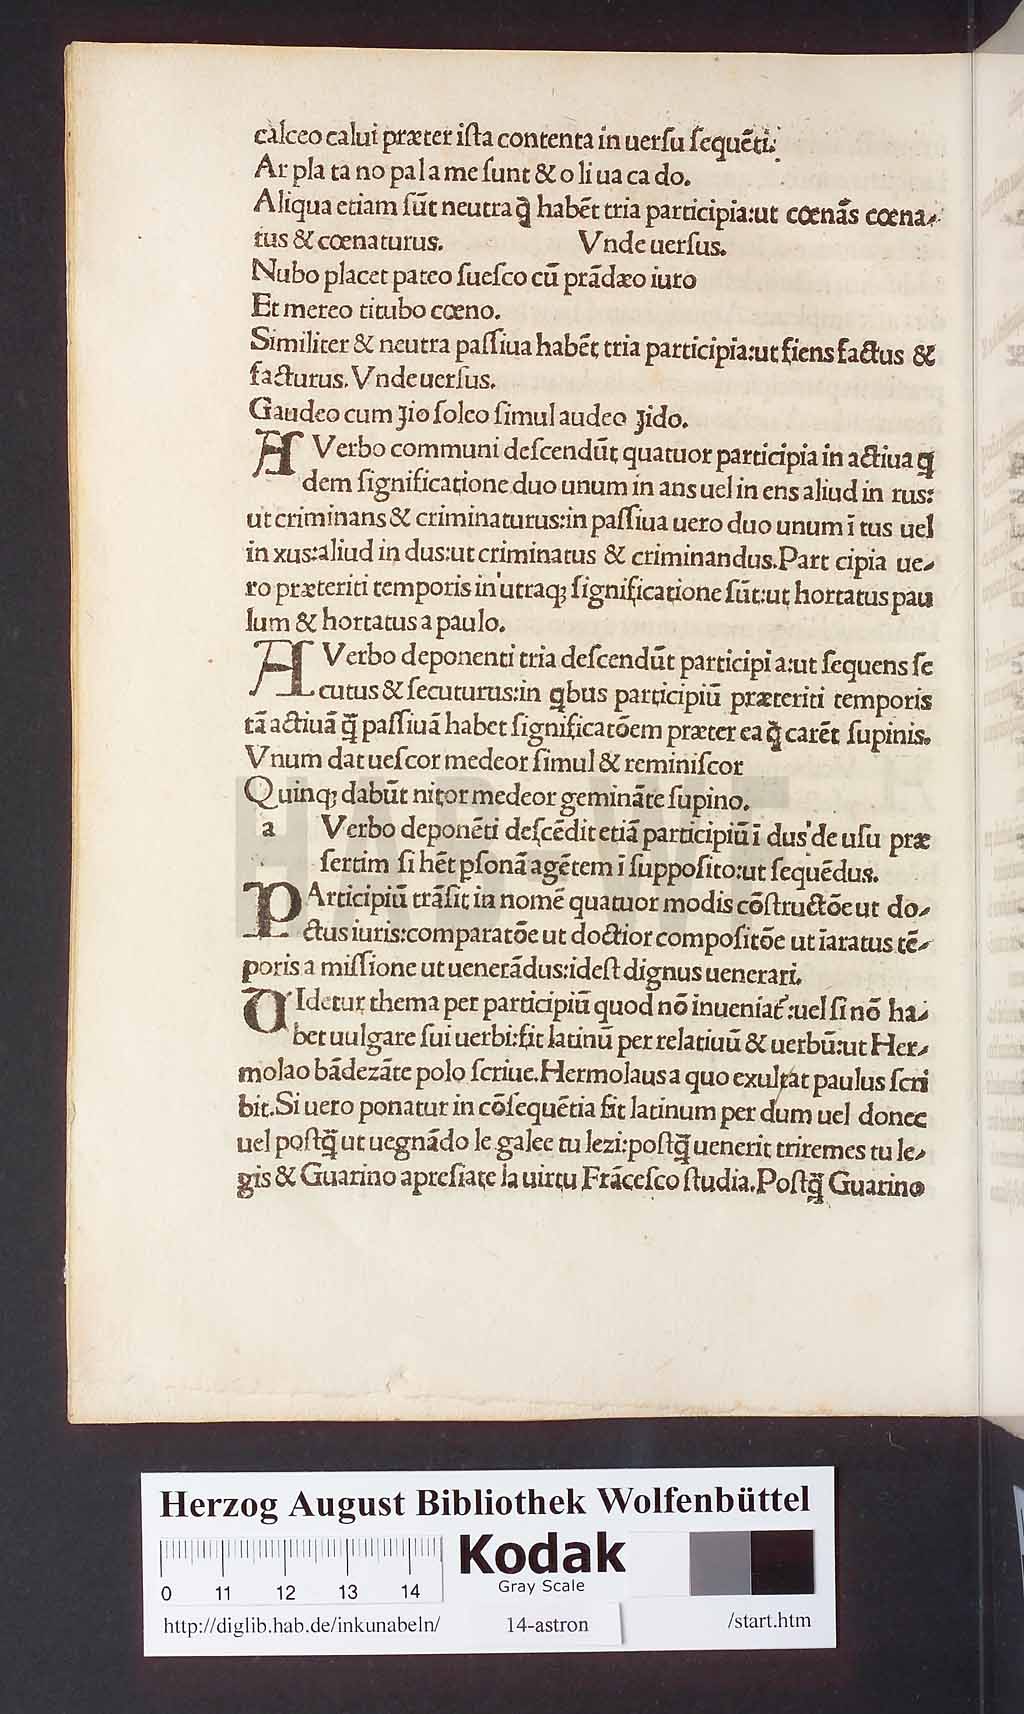 calceo calui præter iſta contenta in uerſu ſequēti:
Ar pla ta no pal a me ſunt & o li ua ca do.
Aliqua etiam ſūt neutra q̄ habēt tria participia:ut cœnās cœna-
tus & cœnaturus. Vnde uerſus.
Nubo placet pateo ſueſco cū prādæo iuro
Et mereo titubo cœno.
Similiter & neutra paſſiua habēt tria participia:ut fiens factus &
facturus. Vnde uerſus.
Gaudeo cum ꝫio ſoleo ſimul audeo ꝫido.
A Verbo communi deſcendūt quatuor participia in actiua q
dem ſignificatione duo unum in ans uel in ens aliud in rus:
ut criminans & criminaturus:in paſſiua uero duo unum ī tus uel
in xus:aliud in dus:ut criminatus & criminandus.Part cipia ue-
ro præteriti temporis in utraqꝫ ſignificatione ſūt:ut hortatus pau
lum & hortatus a paulo.
A Verbo deponenti tria deſcendūt participi a:ut ſequens ſe
cutus & ſecuturus:in qbus participiū præteriti temporis
tā actiuā q̄ paſſiuā habet ſignificatōem præter ea q̄ carēt ſupinis.
Vnum dat ueſcor medeor ſimul & reminiſcor
Quinqꝫ dabūt nitor medeor gemināte ſupino.
a Verbo deponēti deſcēdit etiā participiū ī dus de uſu præ
ſertim ſi hēt pſonā agētem ī ſuppoſito:ut ſequēdus.
PArticipiū trāſit in nomē quatuor modis cōſtructōe ut do-
ctus iuris:comparatōe ut doctior compoſitōe ut īaratus tē-
poris a miſſione ut uenerādus:ideſt dignus uenerari.
VIdetur thema per participiū quod nō inueniat᷑:uel ſi nō ha-
bet uulgare ſui uerbi:fit latinū per relatiuū & uerbū:ut Her-
molao bādezāte polo ſcriue.Hermolaus a quo exultat paulus ſcri
bit.Si uero ponatur in cōſequētia fit latinum per dum uel donec
uel poſtq̄ ut uegnādo le galee tu lezi:poſtq̄ uenerit triremes tu le-
gis & Guarino apreſiate la uirtu Frāceſco ſtudia.Poſtq̄ Guarino
HAB-WF
Herzog August Bibliothek Wolfenbüttel
Kodak
Gray Scale
0 11 12 13 14
http://diglib.hab.de/inkunabeln/ 14-astron /start.htm